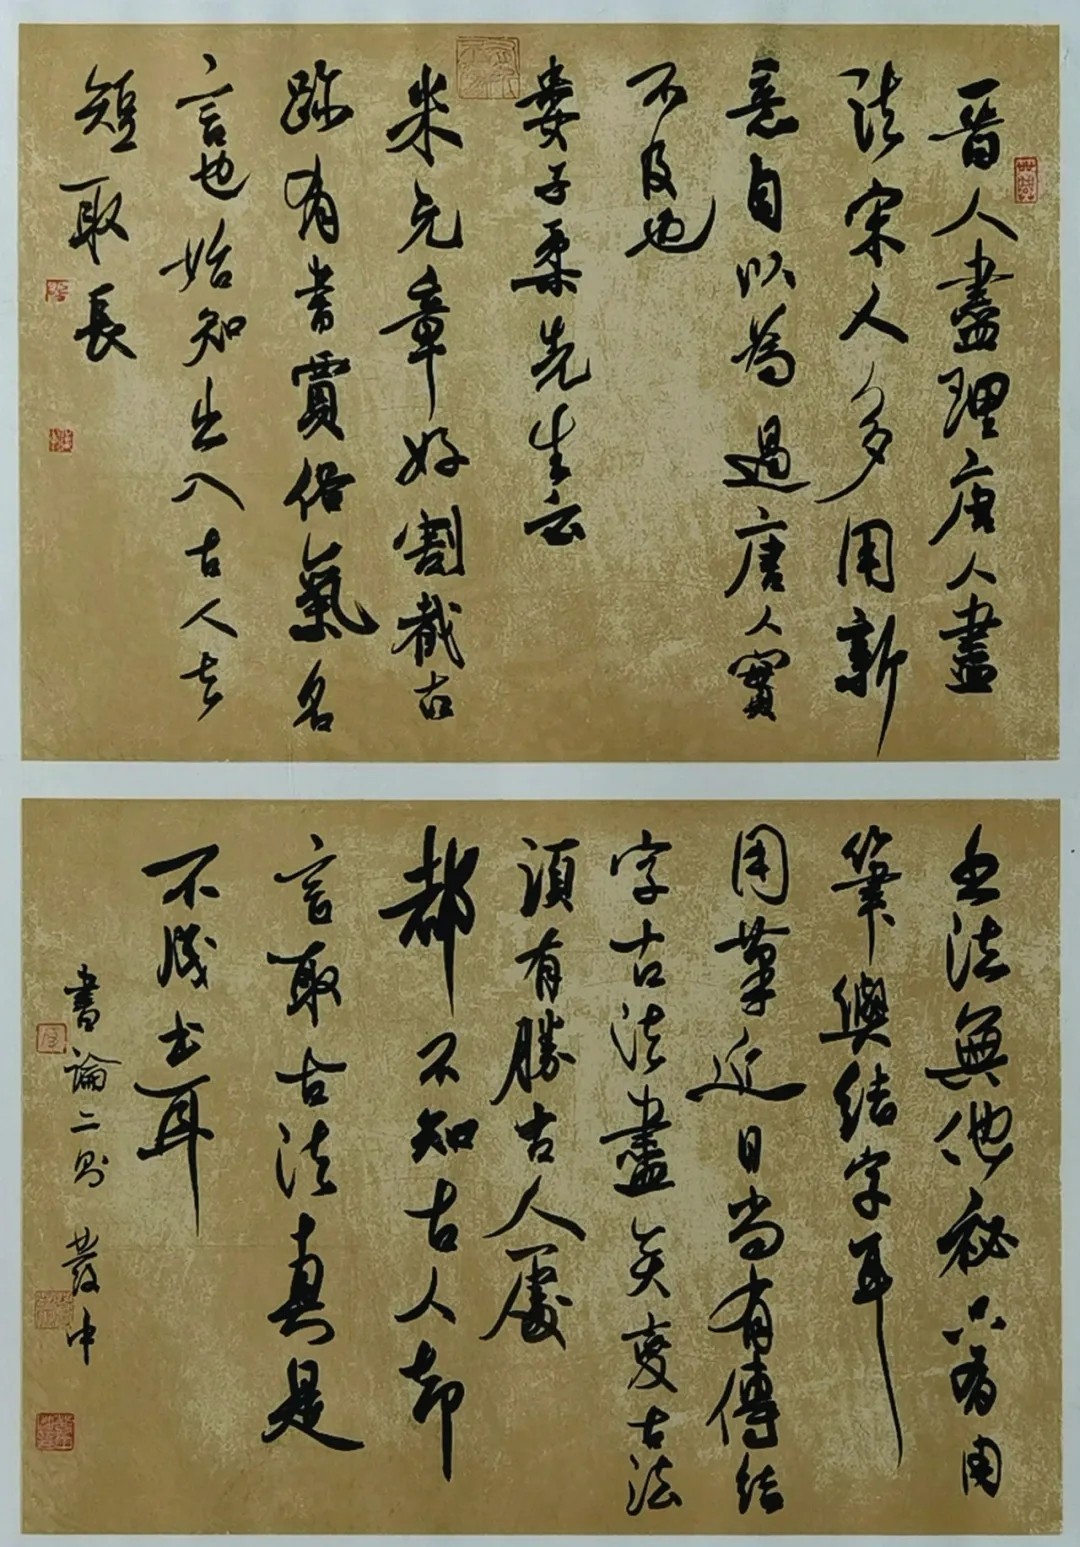 晉人盡理唐人盡
法宋人多用新
意自以為過唐人實
不及也
婁子柔先生云
米元章好割截古
跡有書賈俗氣名
言也始知出入古人去
短取長
書法無他秘只有用
筆與結字耳
用筆近日尚有傳結
字古法盡矣變古法
須有勝古人處
都不知古人却
言取古法真是
不成書耳
書論二則